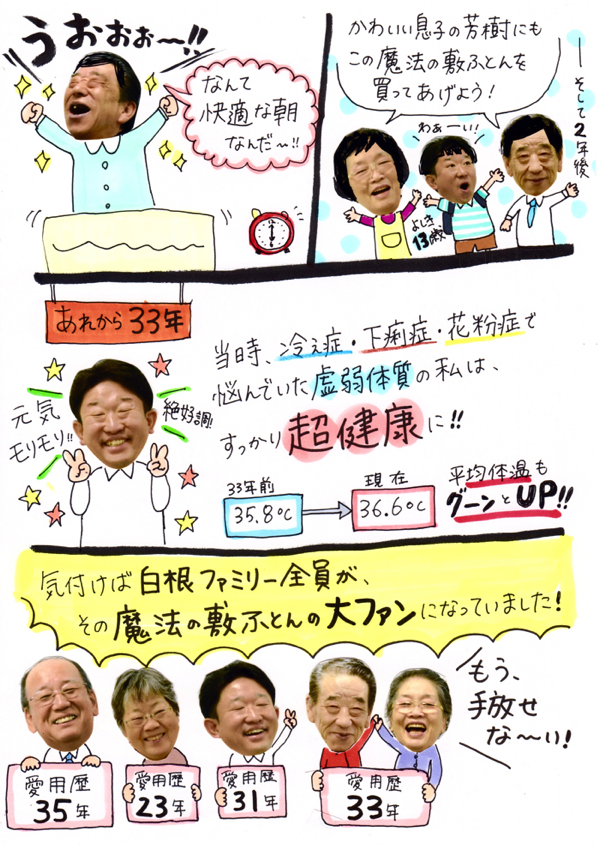 うおぉぉ〜!!
なんて
快適な朝
なんだ〜!!
かわいい息子の芳樹にも
この魔法の敷ふとんを
買ってあげよう!
わぁーい!
よしき
13歳
そして2年後
あれから33年
元気
モリモリ!!
絶好調!
当時、冷え症・下痢症・花粉症で
悩んでいた虚弱体質の私は、
すっかり超健康に!!
33年前
35.8℃
現在
36.6℃
平均体温も
グーンとUP!!
気付けば白根ファミリー全員が、
その魔法の敷ふとんの大ファンになっていました!
もう、
手放せ
な〜い!
愛用歴
35年
愛用歴
23年
愛用歴
31年
愛用歴
33年